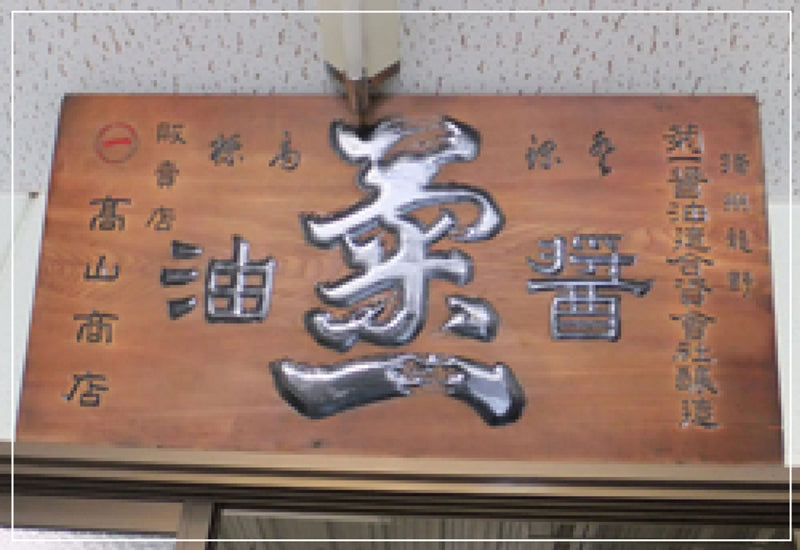 播州龍野
菊一醤油造合資會社醸造
登録
商標
菊一
醤油
販賣店
髙山商店